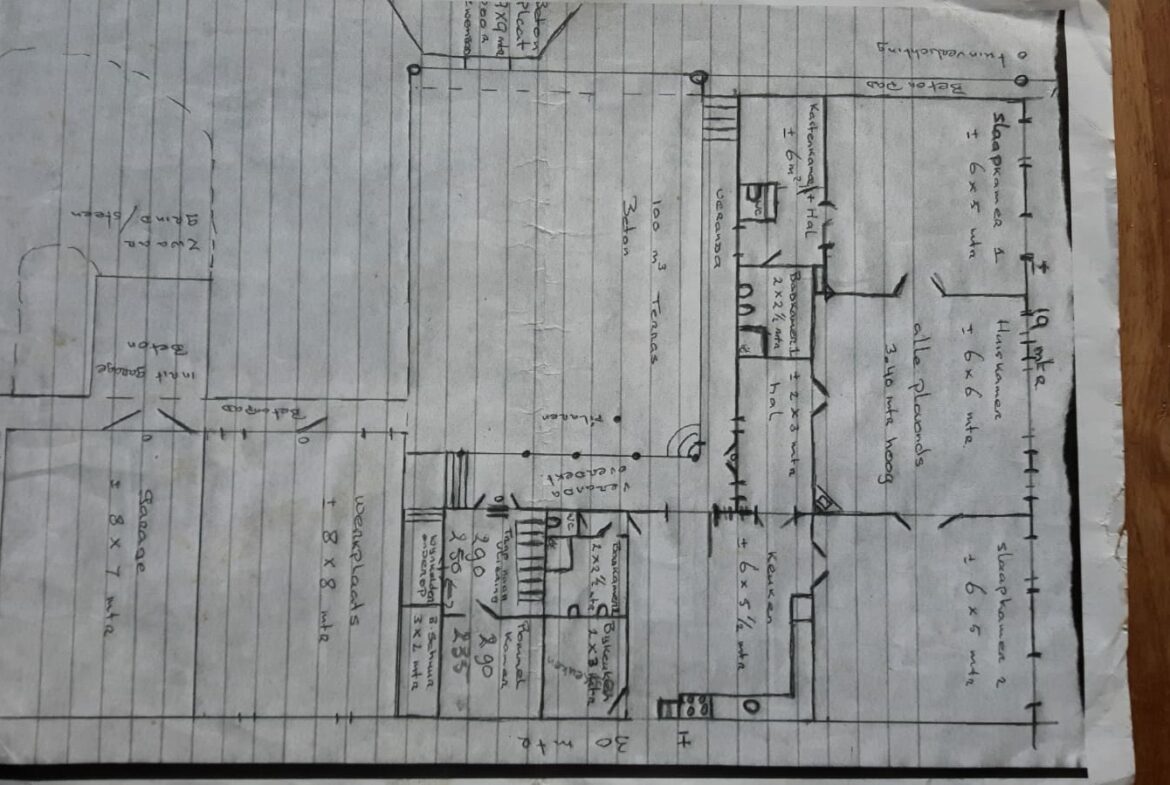 tuinverlichting
Beton Pad
slaapkamer 1
± 6 x 5 mtr
± 19 mtr
Huiskamer
± 6 x 6 mtr
alle plavonds
3.40 mtr hoog
slaapkamer 2
± 6 x 5 mtr
Kastenkamer + Hal
± 6 m²
WC
Badkamer 1
2 x 2 ½ mtr
± 2 x 3 mtr
hal
keuken
± 6 x 5 ½ mtr
H
veranda
Beton
plaat
7 x 9 mtr
voor
100 m³ Terras
Beton
Pilaren
veranda
overdekt
Badkamer
2 x 2 ½ mtr
WC
Bykeuken
2 x 3 mtr
Trap naar
290
250
Rommel
kamer
290
235
B. schuur
3 x 2 mtr
30 mtr
grind/
steen
inrit
garage
Beton
Beton Pad
werkplaats
± 8 x 8 mtr
garage
± 8 x 7 mtr